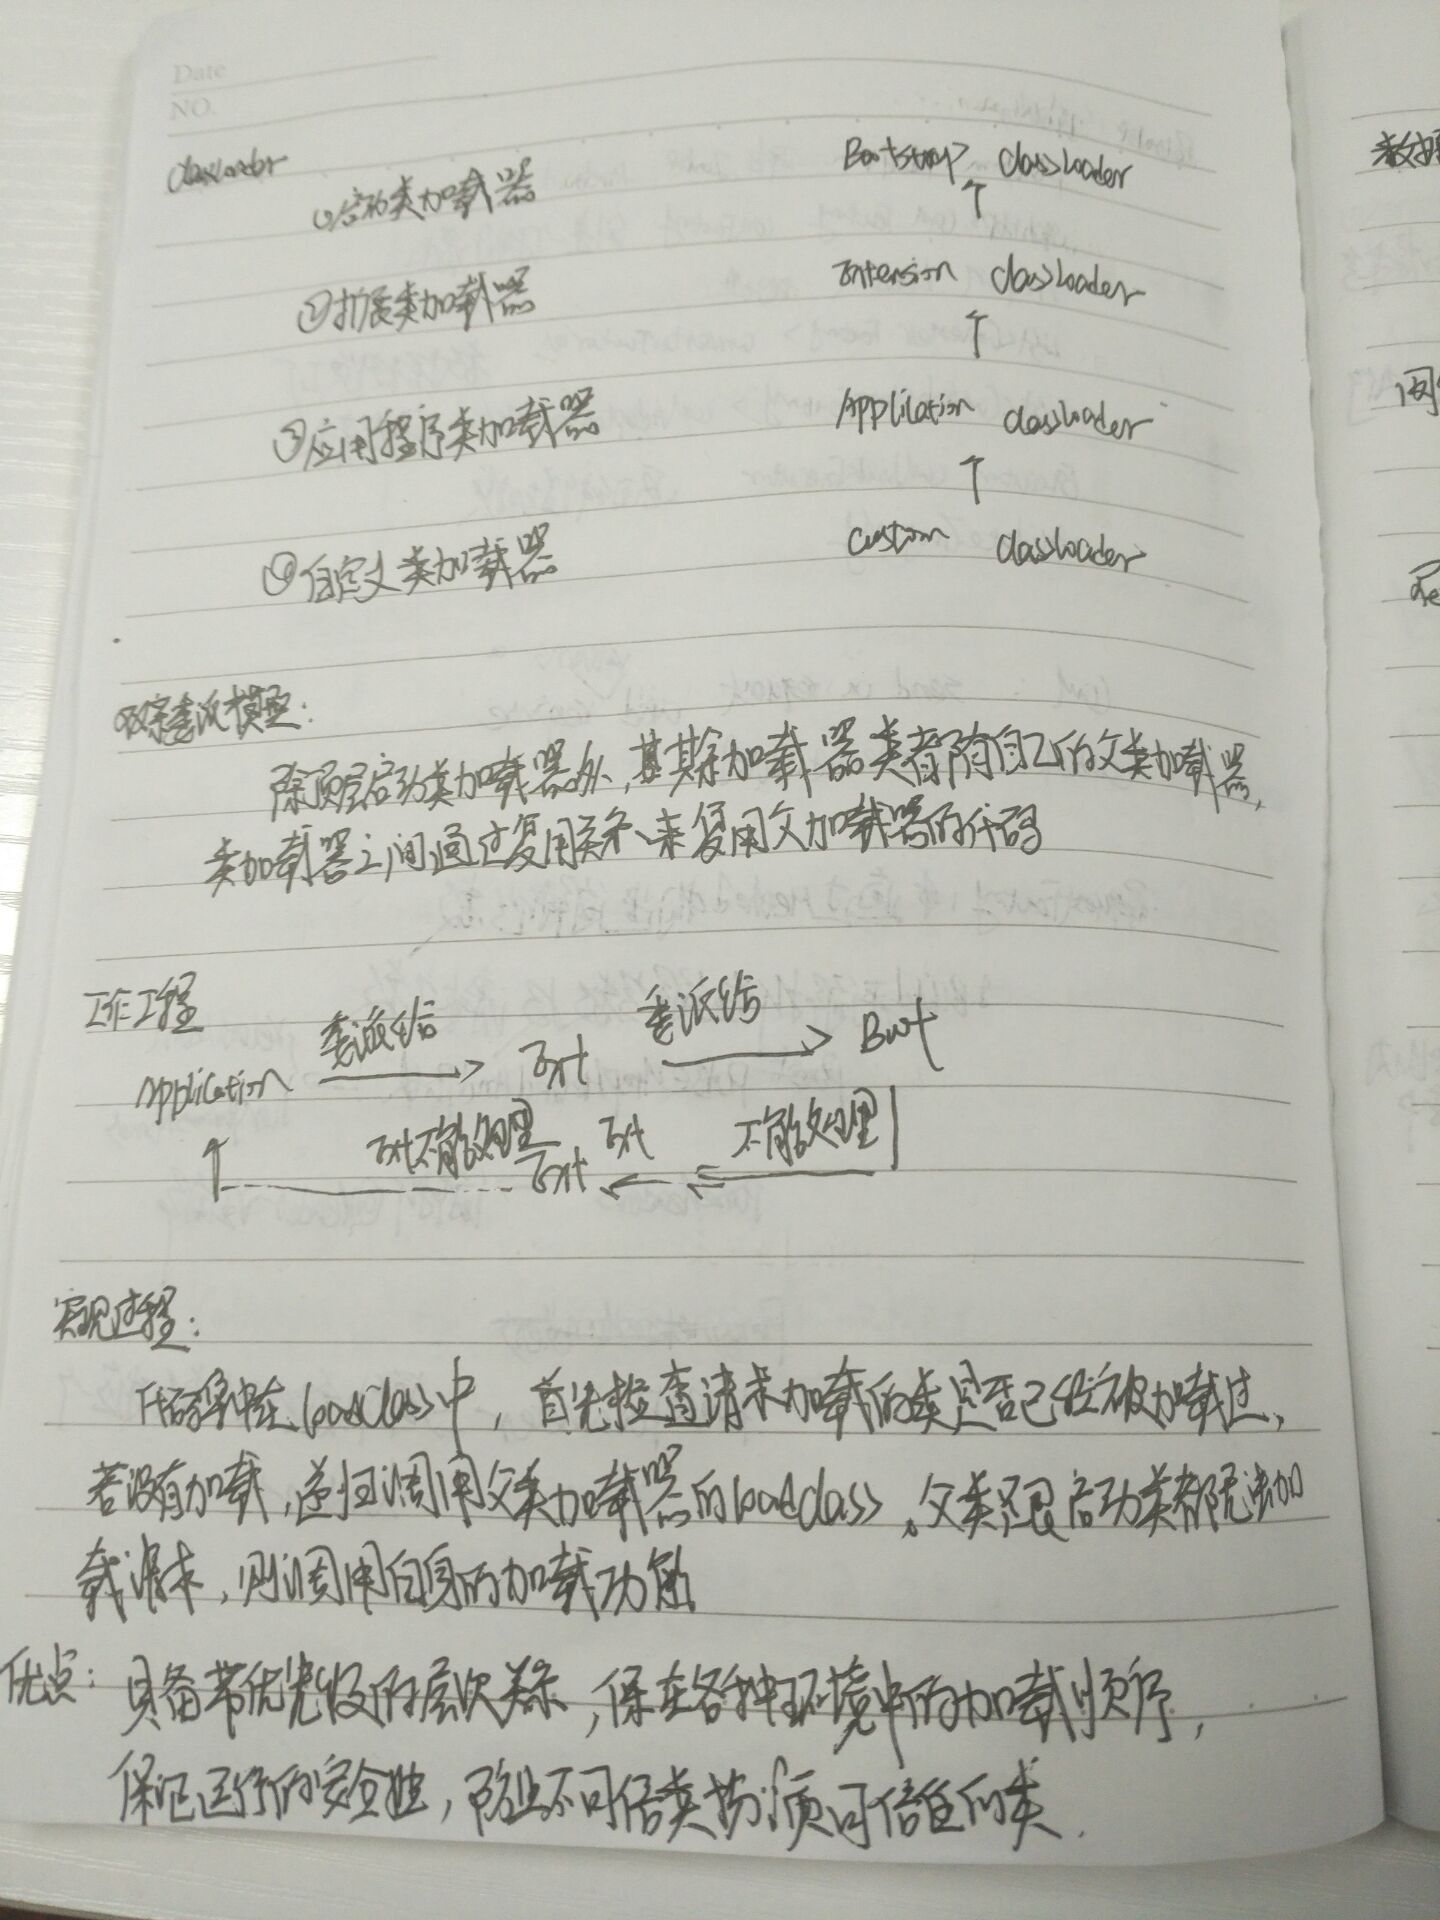 Date
NO.
classloader
①启动类加载器 Bootstrap classLoader
↑
②扩展类加载器 Extension classLoader
↑
③应用程序类加载器 Application classLoader
↑
④自定义类加载器 Custom classLoader
双亲委派模型:
除顶层启动类加载器外,其余加载器类都有自己的父类加载器,
类加载器之间通过复用关系来复用父加载器的代码
工作工程
委派给 委派给
Application → Ext → Boot
Ext不能处理 Ext 不能处理
Ext
实现过程:
代码集中在loadClass中,首先检查请求加载的类是否已经被加载过,
若没有加载,递归调用父类加载器的loadClass。父类 启动类都无法加
载请求,则调用自身的加载功能
优点: 具备带优先级的层次关系,保在各种环境中的加载顺序,
保证运行的安全性,防止不可信类扮演可信任的类.
数据